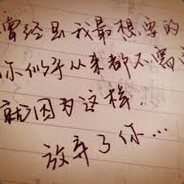 曾经是我最想要的
你似乎从来都不需
就因为这样.
放弃了你...